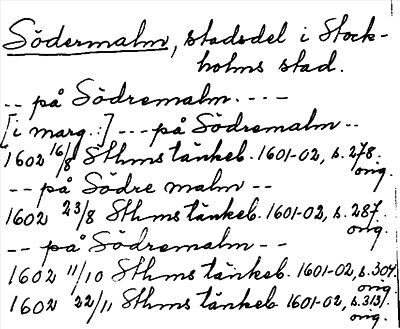 Södermalm, stadsdel i Stock-
holms stad.
-- på Södremalm. ---
[i marg.:] --- på Södremalm --
1602 16/8 Sthms tänkeb. 1601-02, s. 278.
orig.
-- på Södre malm --
1602 23/8 Sthms tänkeb. 1601-02, s. 287.
orig.
-- på Södremalm --
1602 11/10 Sthms tänkeb. 1601-02, s. 304.
orig.
1602 22/11 Sthms tänkeb. 1601-02, s. 313.
orig.